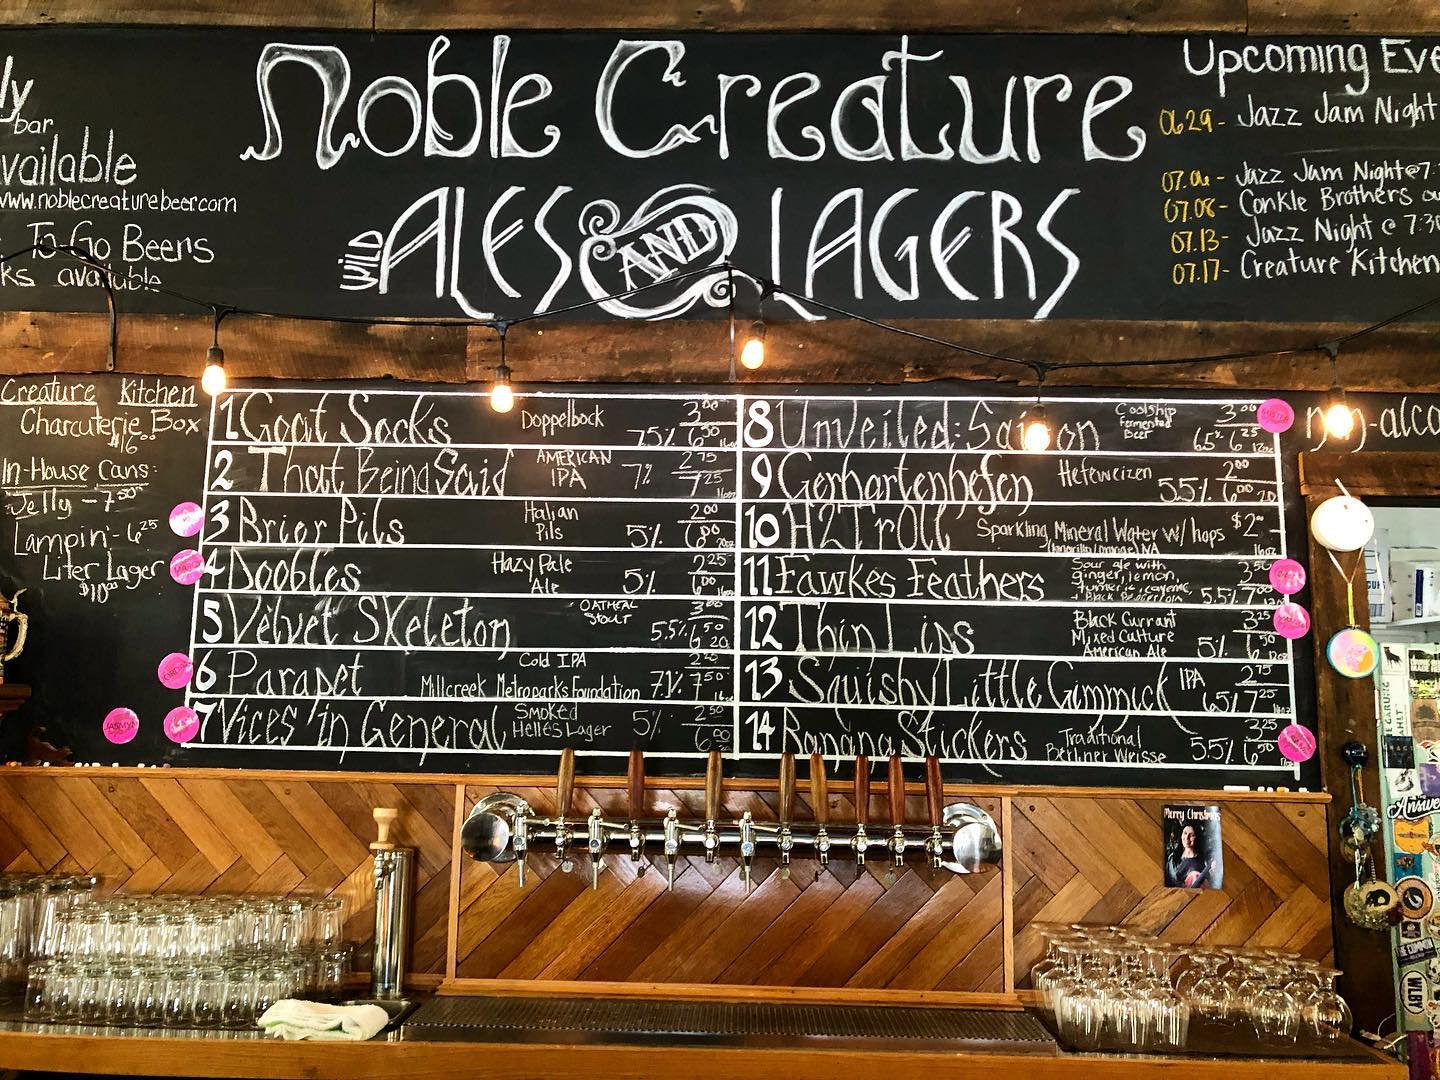 ly
bar
available
www.noblecreaturebeer.com
To Go Beers
ks available
Noble Creature
WILD ALES AND LAGERS
Upcoming Eve
06.29 - Jazz Jam Night
07.06 - Jazz Jam Night @ 7:
07.08 - Conkle Brothers
07.13 - Jazz Night @ 7:30
07.17 - Creature Kitchen
Creature Kitchen
Charcuterie Box
$16.00
In-House Cans:
Jelly - 7.50
Lampin' - 6.25
Liter Lager
$10.00
1 Goat Socks Doppelbock 7.5% 3.00 6.50
2 That Being Said AMERICAN IPA 7% 2.75 7.25
3 Brier Pils Italian Pils 5% 2.00 6.00
4 Doobles Hazy Pale Ale 5% 2.25 6.00
5 Velvet Skeleton OATMEAL STOUT 5.5% 3.00 6.50 20
6 Parapet Cold IPA Millcreek Metroparks Foundation 7.1% 7.50
7 Vices in General Smoked Helles Lager 5% 2.50 6.00
8 Unveiled: Saison Coolship Fermented Beer 6.5% 3.00 6.25 12oz
9 Gerhartenhefen Hefeweizen 5.5% 2.00 6.00 20
10 H2Troll Sparkling Mineral Water w/ hops NA $2.00 16oz
11 Fawkes Feathers Sour ale with ginger, lemon, 5.5% 3.50 7.00
12 Thin Lips Black Currant Mixed Culture American Ale 5% 3.25 6.50
13 Squishy Little Gimmick IPA 6.5% 2.75 7.25
14 Banana Stickers Traditional Berliner Weisse 5.5% 3.25 6.50
non-alco
Merry Christmas
Answer
THE COMMON
WLBY